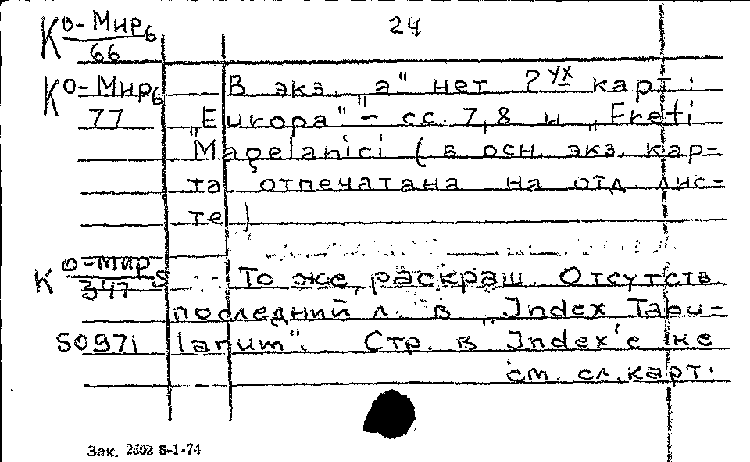 24
Ко-Мир6
66
Ко-Мир6 В экз. „а" нет 2ух карт:
77 „Europa" - сс. 7,8 и „Freti
Magelanici (в осн. экз. кар-
та отпечатана на отд. лис-
те)
Ко-мир
347 То же, раскраш. Отсутств.
последний л. в „Index Tabu-
50971 larum". Стр. в Index'е не
см. сл. карт.
Зак. 2602 8-1-74